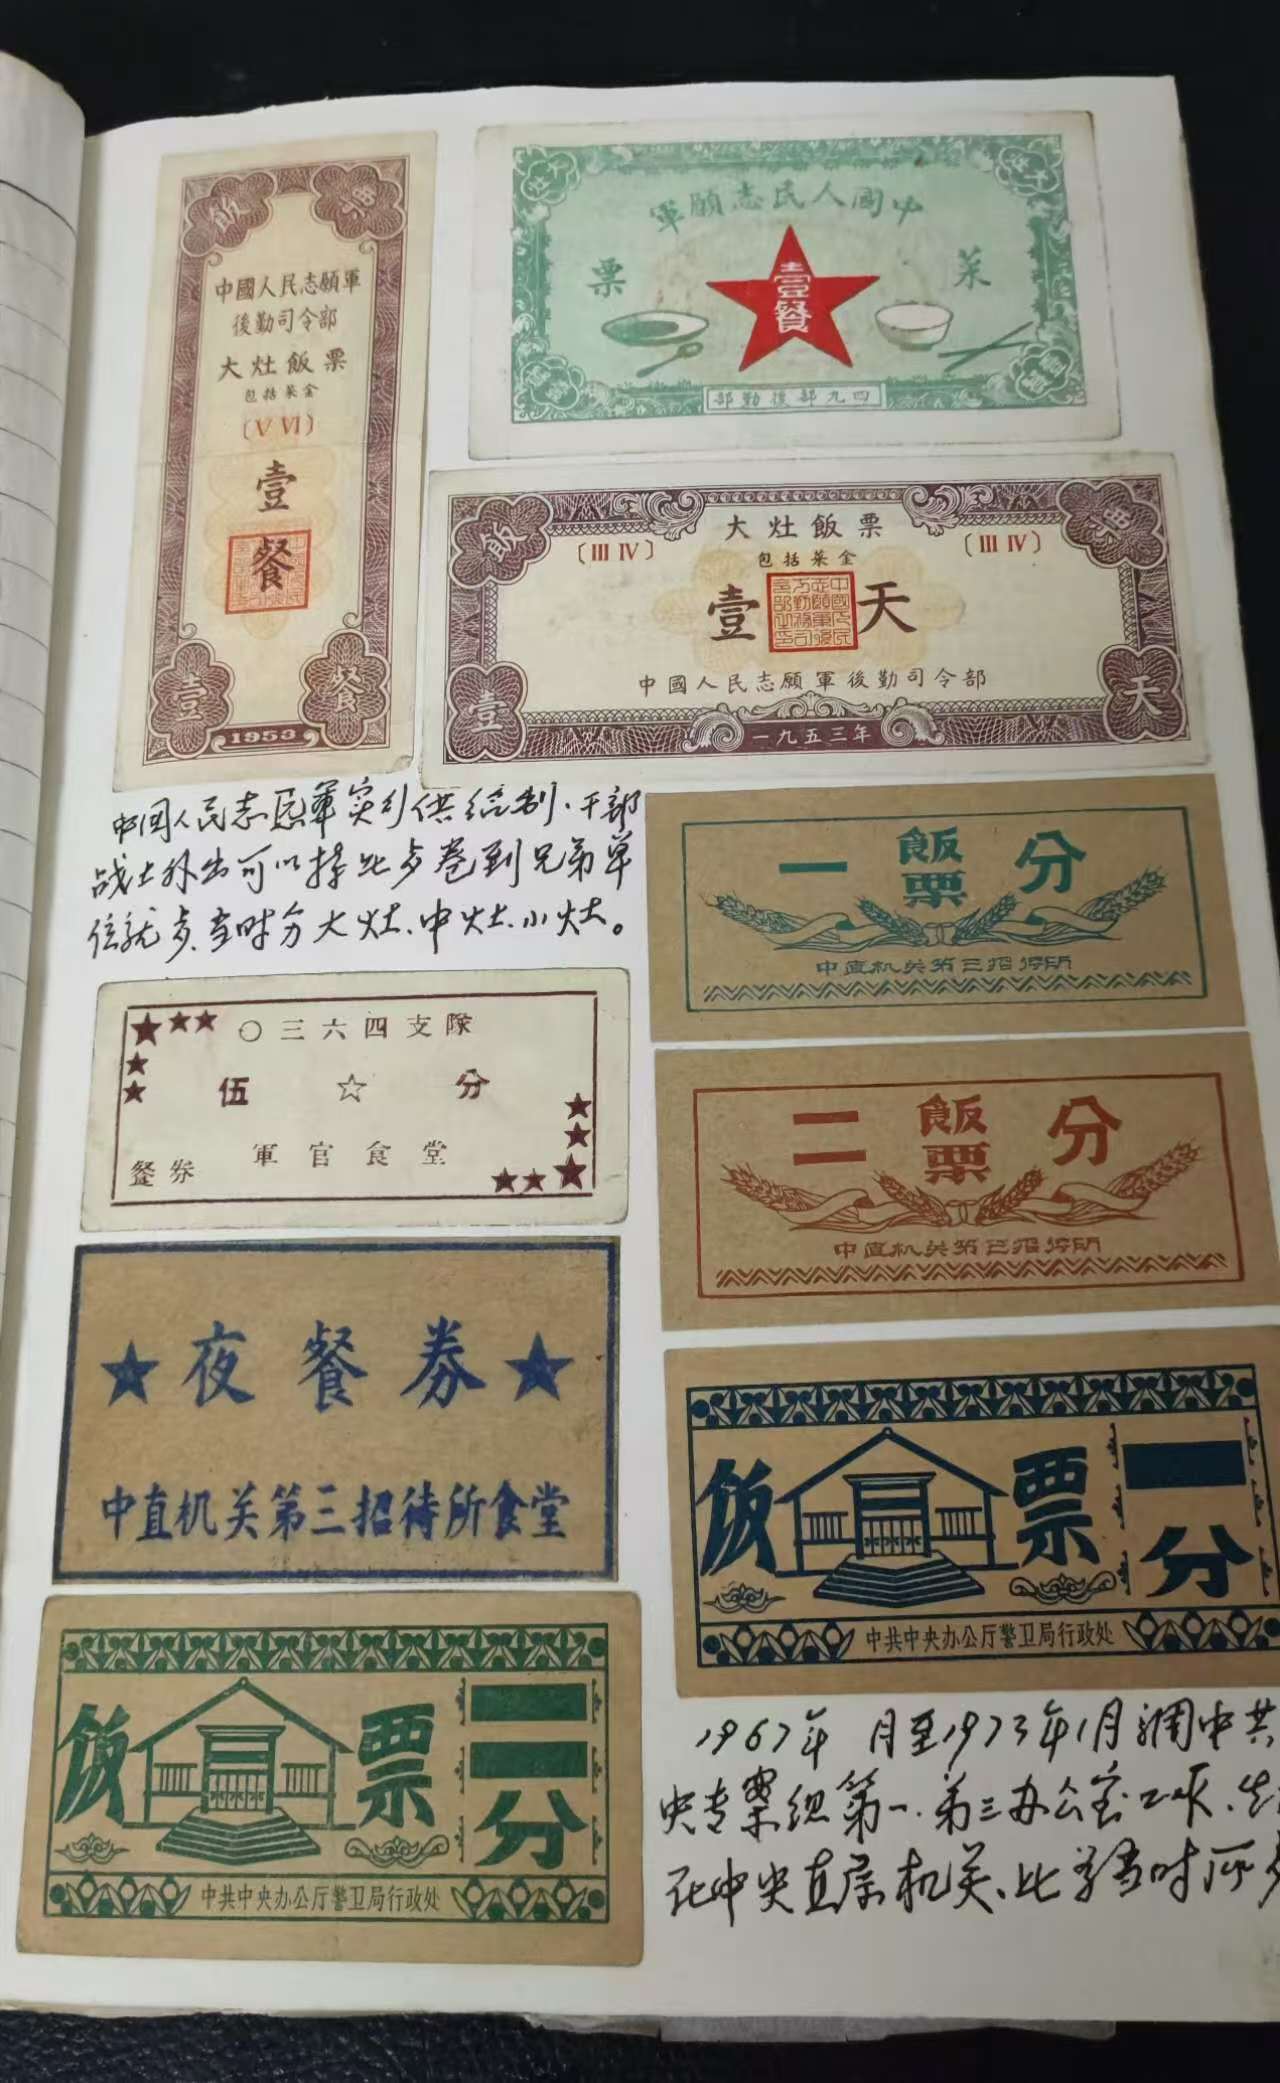 飯
票
中國人民志願軍
後勤司令部
大灶飯票
包括菜金
〔V VI〕
壹
餐
壹
餐
1953
大
灶
中國人民志願軍
菜
票
壹餐
四九部後勤部
飯
票
大灶飯票
〔III IV〕
〔III IV〕
包括菜金
壹 天
中國人民志願軍後勤司令部
壹
天
一九五三年
中国人民志愿軍实行供给制.干部
战士外出可以持此歺卷到兄弟单
位就歺.当时分大灶.中灶.小灶。
一 飯票 分
中直机关第三招待所
〇三六四支隊
伍☆分
軍官食堂
餐券
二 飯票 分
中直机关第三招待所
★夜餐券★
中直机关第三招待所食堂
饭票一分
中共中央办公厅警卫局行政处
饭票二分
中共中央办公厅警卫局行政处
1967年 月至1973年1月調中共
央专案组第一.第三办公室工作.
在中央直属机关.此券当时所